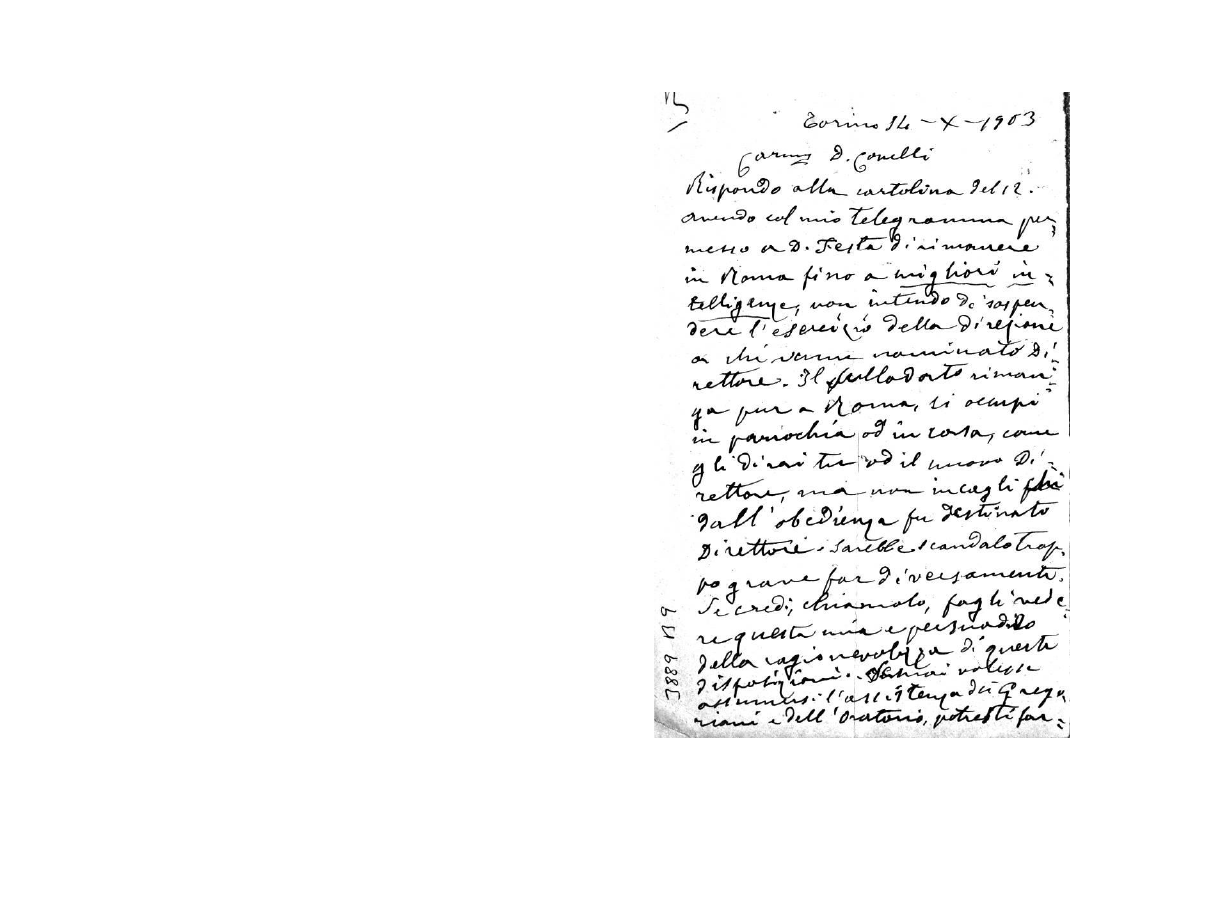 Torino 14-X-1903
Carmo D. Conelli
Rispondo alla cartolina del 12.
Avendo col mio telegramma per=
messo a D. Festa di rimanere
in Roma fino a migliori in=
telligenze, non intendo di sospen=
dere l'esercizio della direzione
a chi venne nominato Di=
rettore. Il sullodato riman=
ga pur a Roma, si occupi
in parrochia od in casa, come
gli dirai tu od il nuovo Di=
rettore, ma non incagli chi
dall'obedienza fu destinato
Direttore. Sarebbe scandalo trop=
po grave far diversamente.
Se credi, chiamalo, fagli vede=
re questa mia e persuadilo
della ragionevolezza di queste
disposizioni. volesse
assumersi l'assistenza dei Grego
riani e dell'Oratorio, potresti far=
3889 B 9